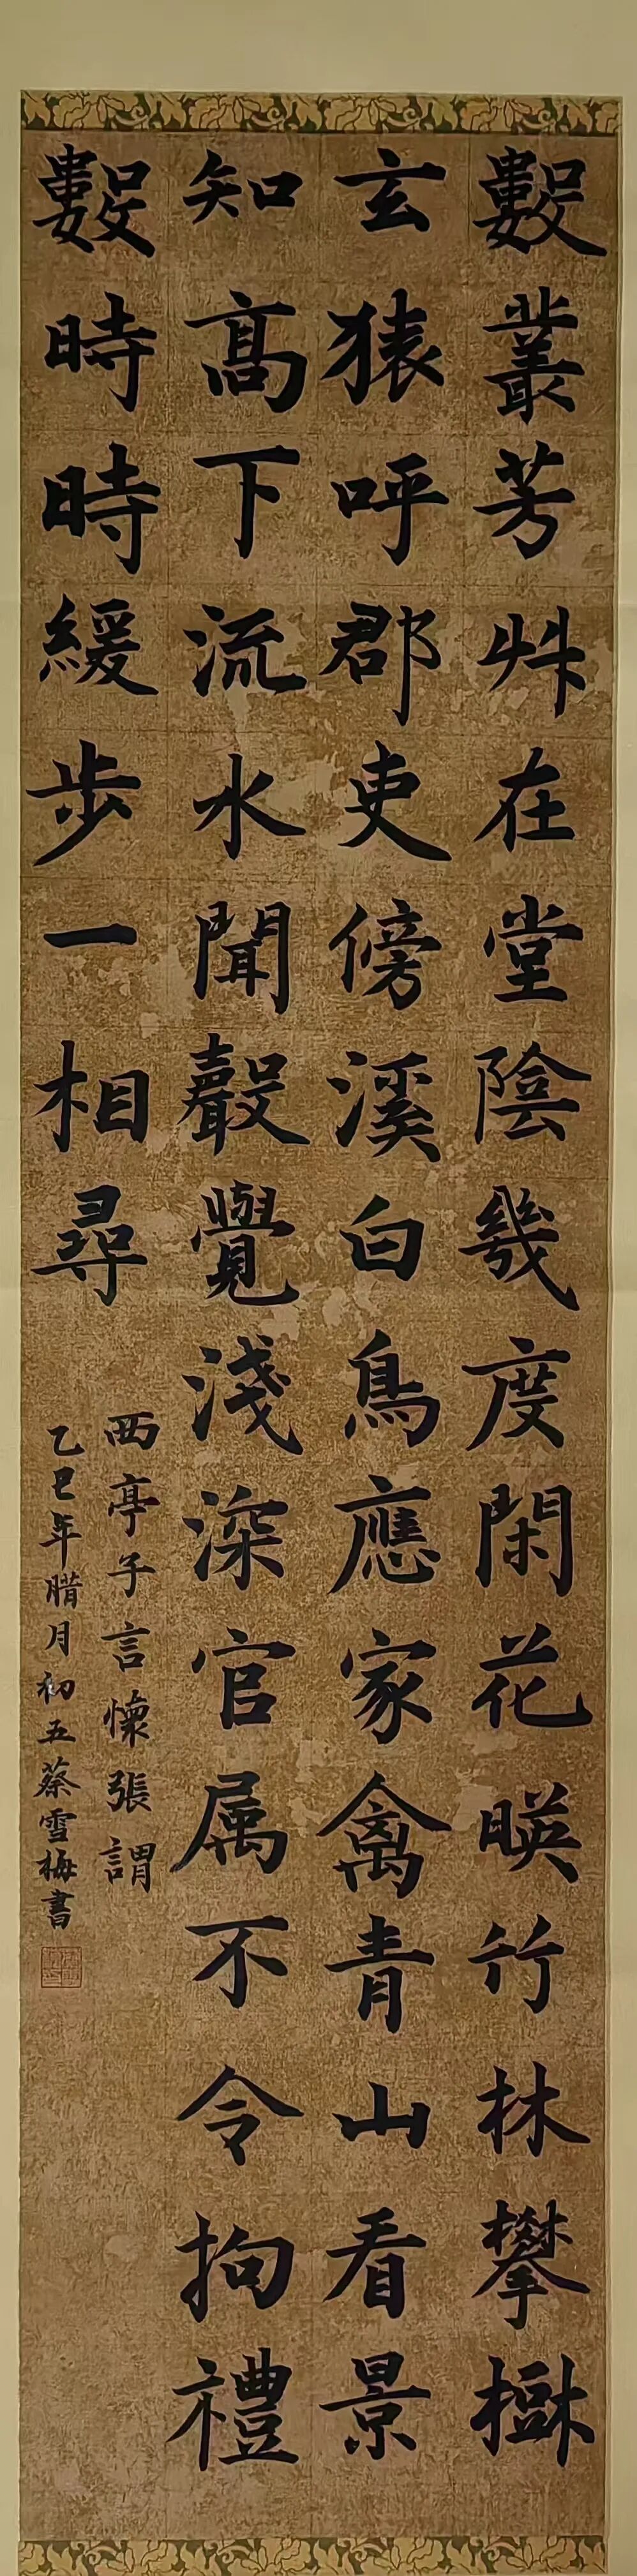 數叢芳艸在堂陰幾度閑花暎竹林攀樹
玄猿呼郡吏傍溪白鳥應家禽青山看景
知髙下流水聞聲覺淺深官属不令拘禮
數時時緩步一相尋
西亭子言懷張謂
乙巳年腊月初五蔡雪梅書